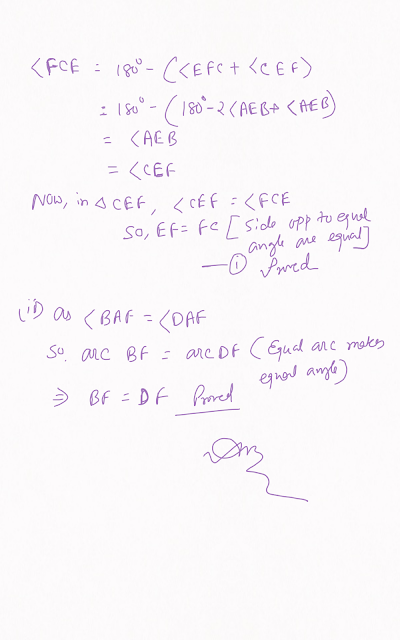 <FCE = 180° - (<EFC + <CEF)
= 180° - (180° - 2<AEB + <AEB)
= <AEB
= <CEF
Now, in △ CEF, <CEF = <FCE
So, EF = FC [Side opp to equal
angle are equal]
— ① Proved
(ii) as <BAF = <DAF
So. arc BF = arc DF (Equal arc makes
equal angle)
⇒ BF = DF Proved